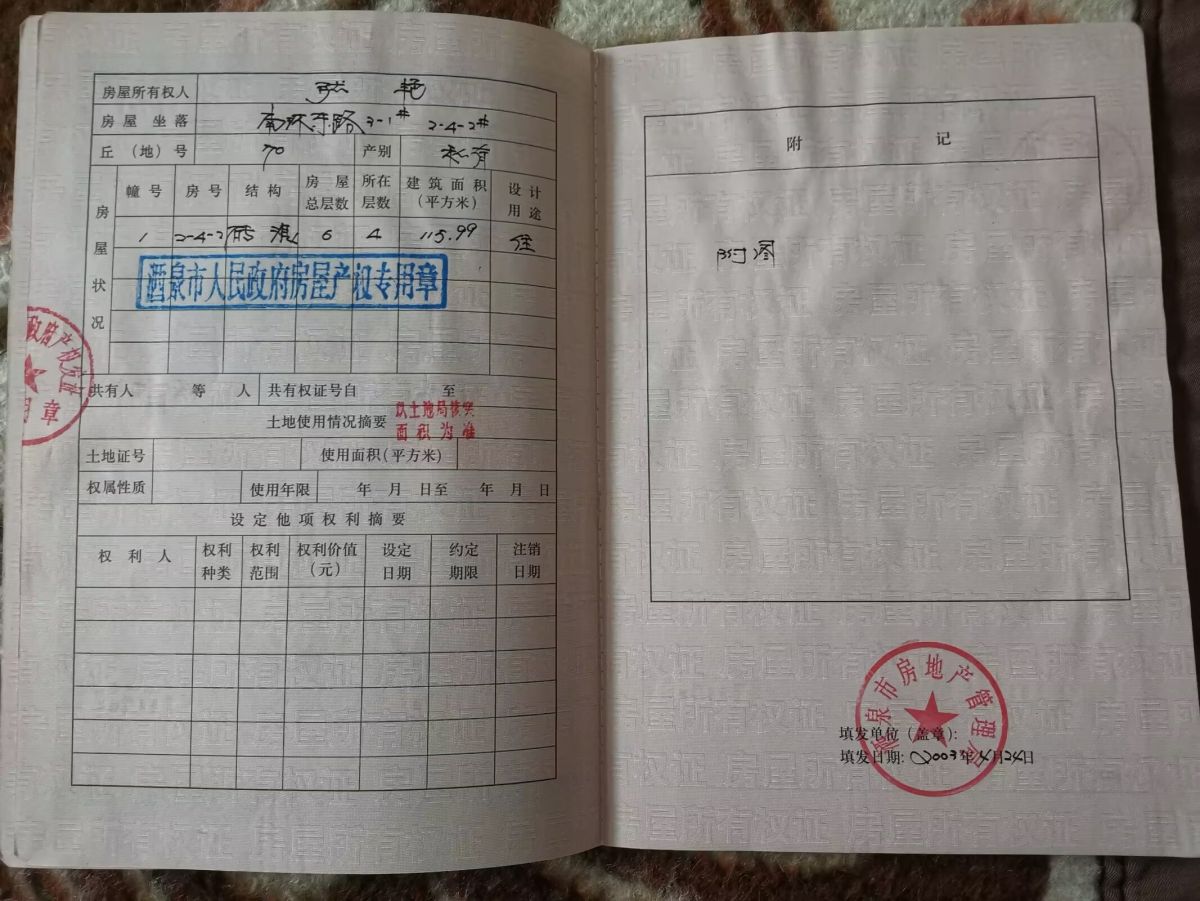 房屋所有权人 张艳
房屋坐落 南环东路3-1# 2-4-2#
丘（地）号 70 产别 私有
房屋状况
幢号 房号 结构 房屋总层数 所在层数 建筑面积（平方米） 设计用途
1 2-4-2 砖混 6 4 115.99 住
酒泉市人民政府房屋产权专用章
政府产权发证
用章
共有人 等 人 共有权证号自 至
土地使用情况摘要 以土地局核实
面积为准
土地证号 使用面积（平方米）
权属性质 使用年限 年 月 日至 年 月 日
设定他项权利摘要
权利人 权利种类 权利范围 权利价值（元） 设定日期 约定期限 注销日期
附 记
附图
酒泉市房地产管理
填发单位（盖章）:
填发日期: 2003年4月24日